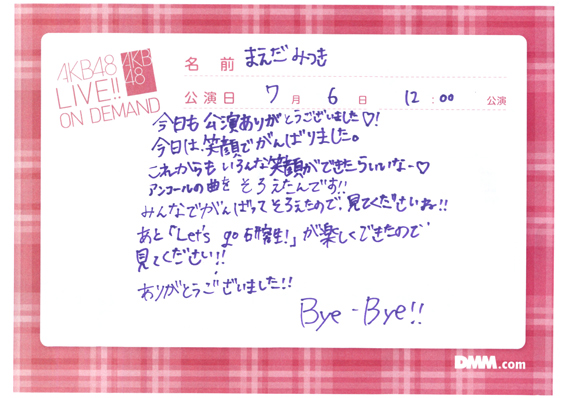 AKB48
LIVE!!
ON DEMAND
AKB
48
名前 まえだ みつき
公演日 7月 6日 12:00 公演
今日も公演ありがとうございました♡!
今日は、笑顔でがんばりました。
これからもいろんな笑顔ができたらいいなー♡
アンコールの曲をそろえたんです!!
みんなでがんばってそろえたので、見てくださいね!!
あと「Let's go 研究生!」が楽しくできたので
見てください!!
ありがとうございました!!
Bye-Bye!!
DMM.com